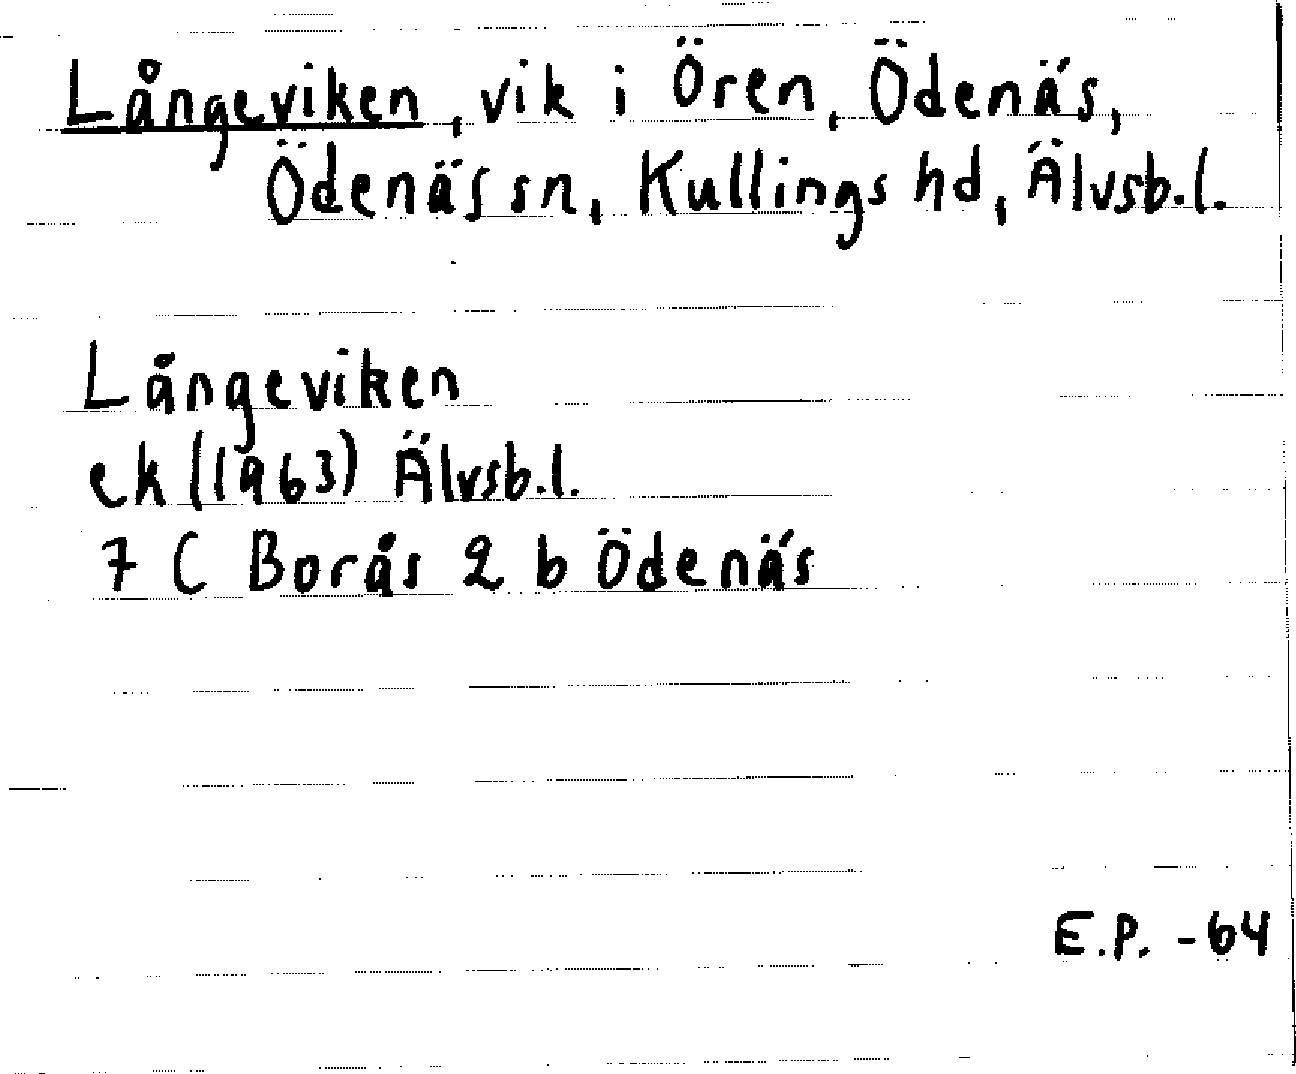 Långeviken, vik i Ören, Ödenäs,
Ödenäs sn, Kullings hd, Älvsb.l.
Långeviken
ek (1963) Älvsb.l.
7 C Borås 2 b Ödenäs
E.P. -64